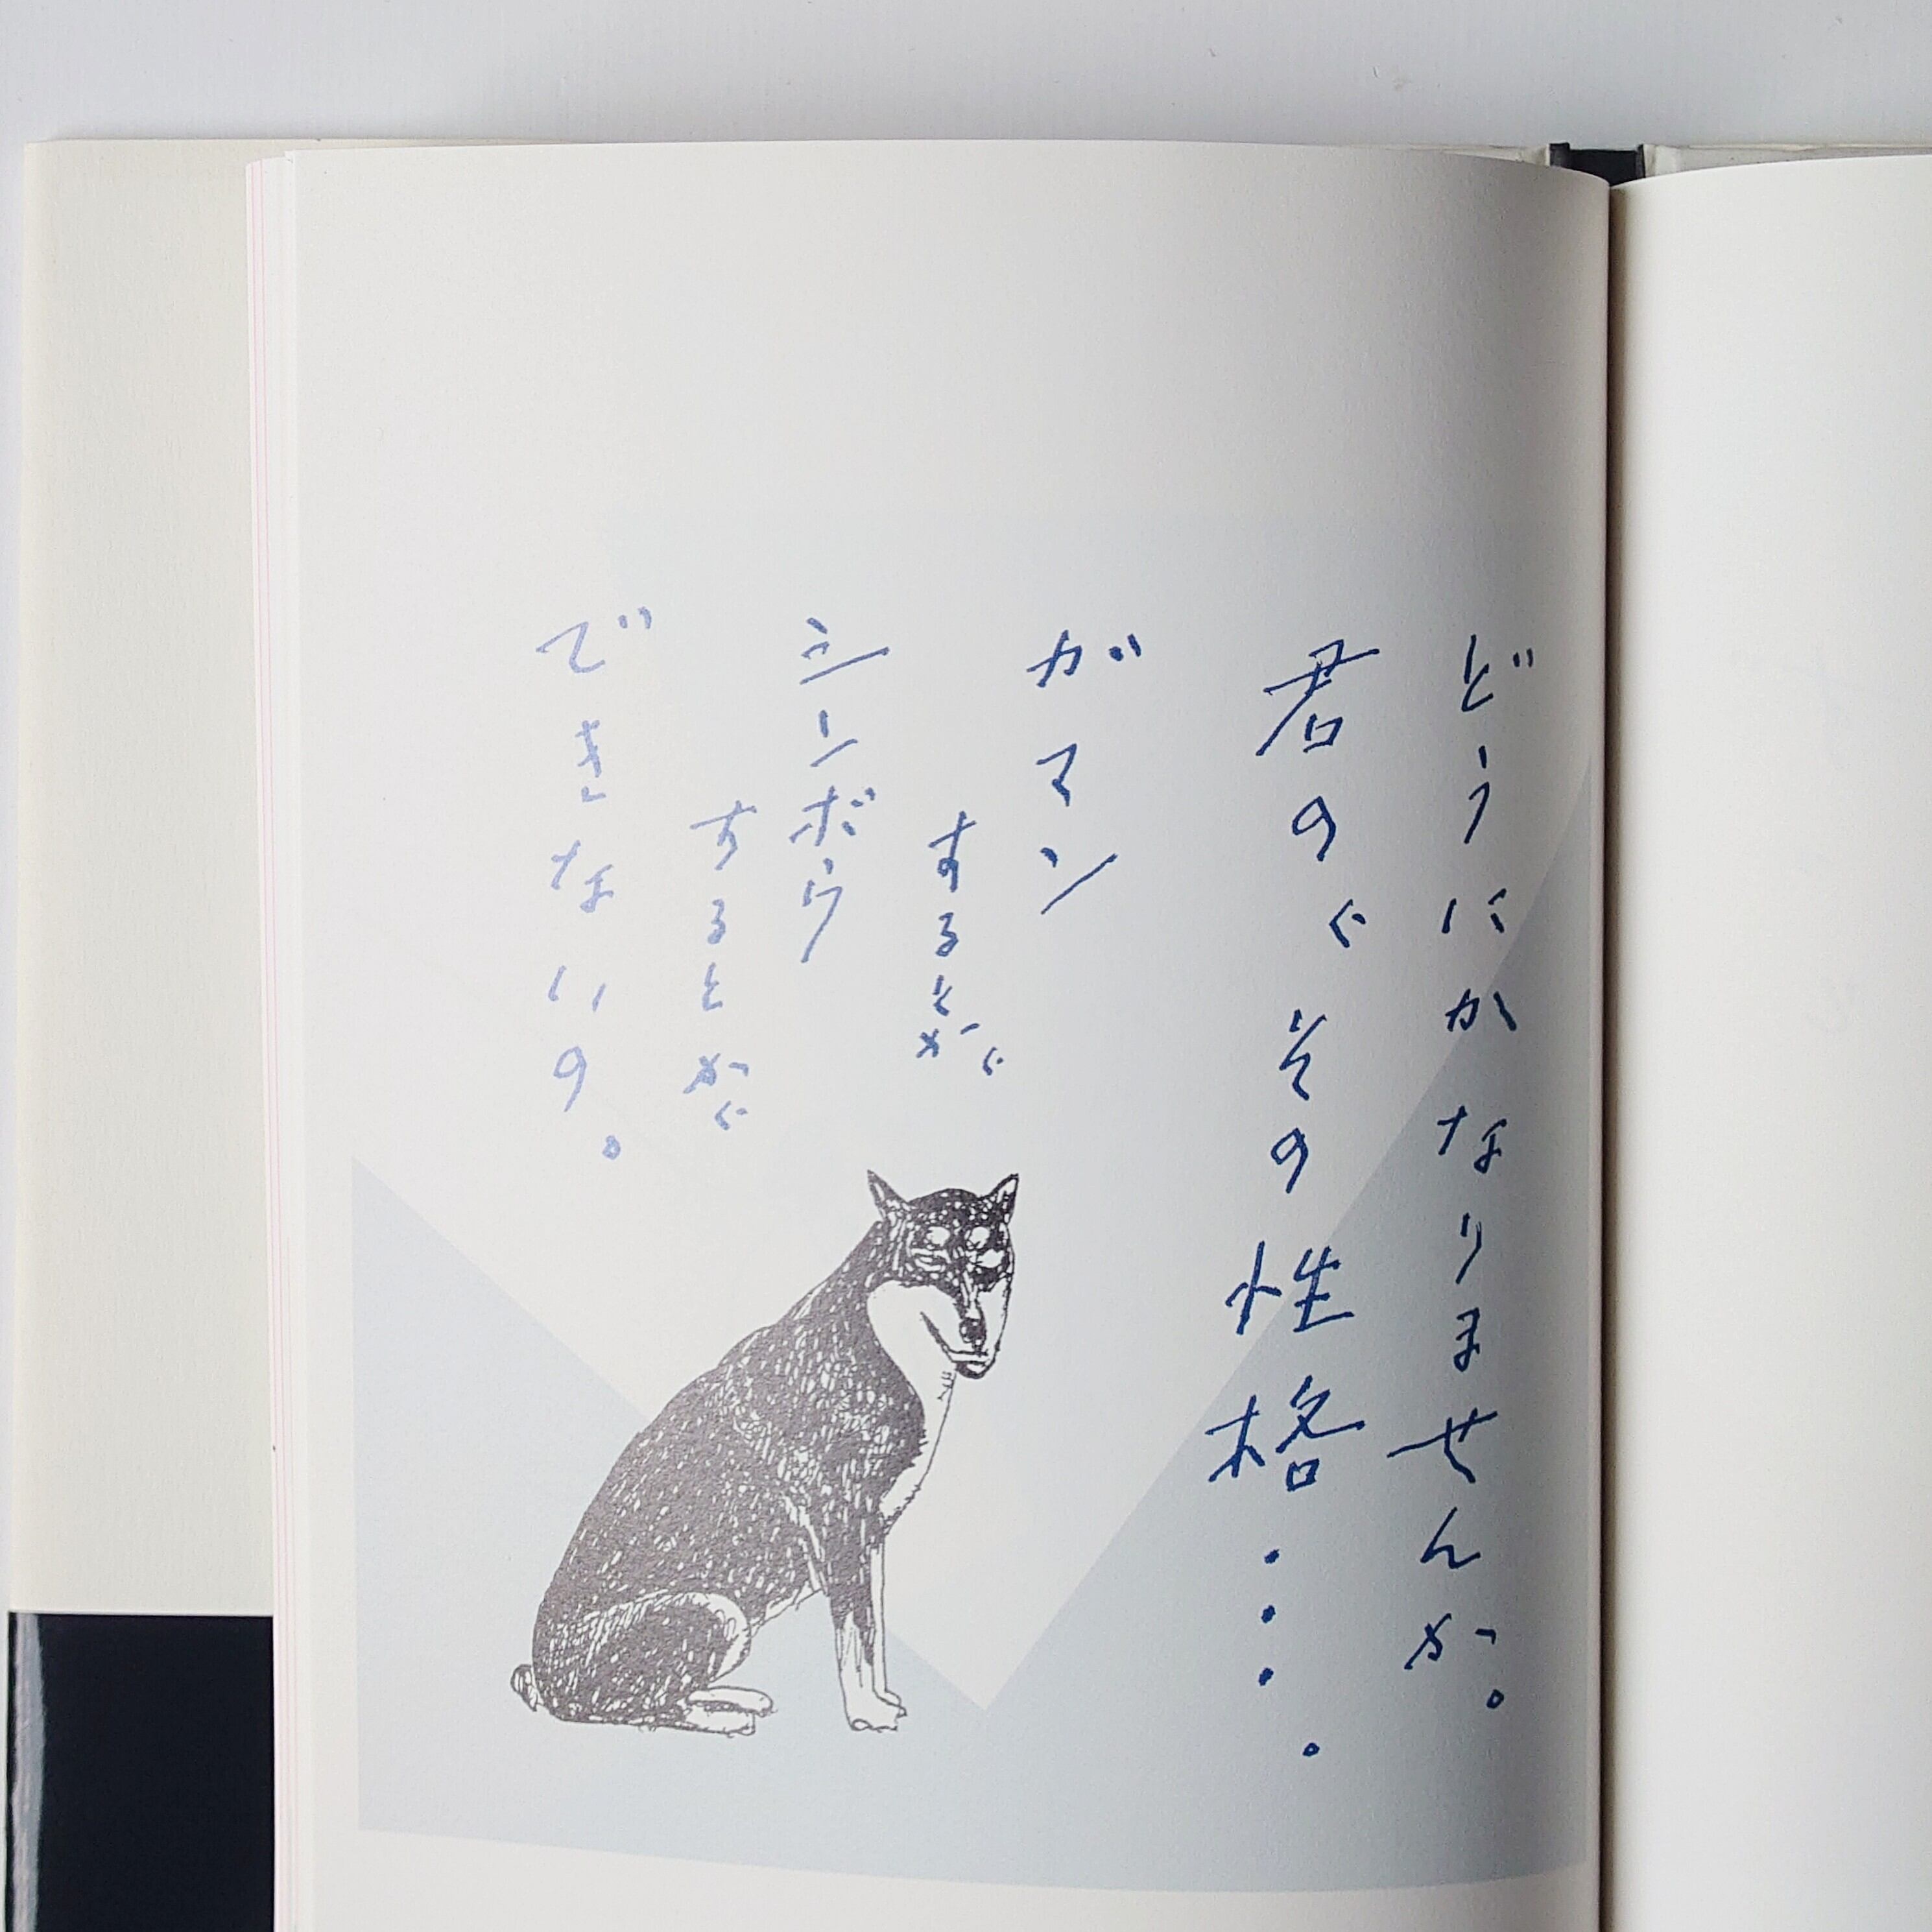 どうにかなりませんか。
君の、その性格・・・。
ガマン
するとか、
シンボウ
するとか、
できないの。